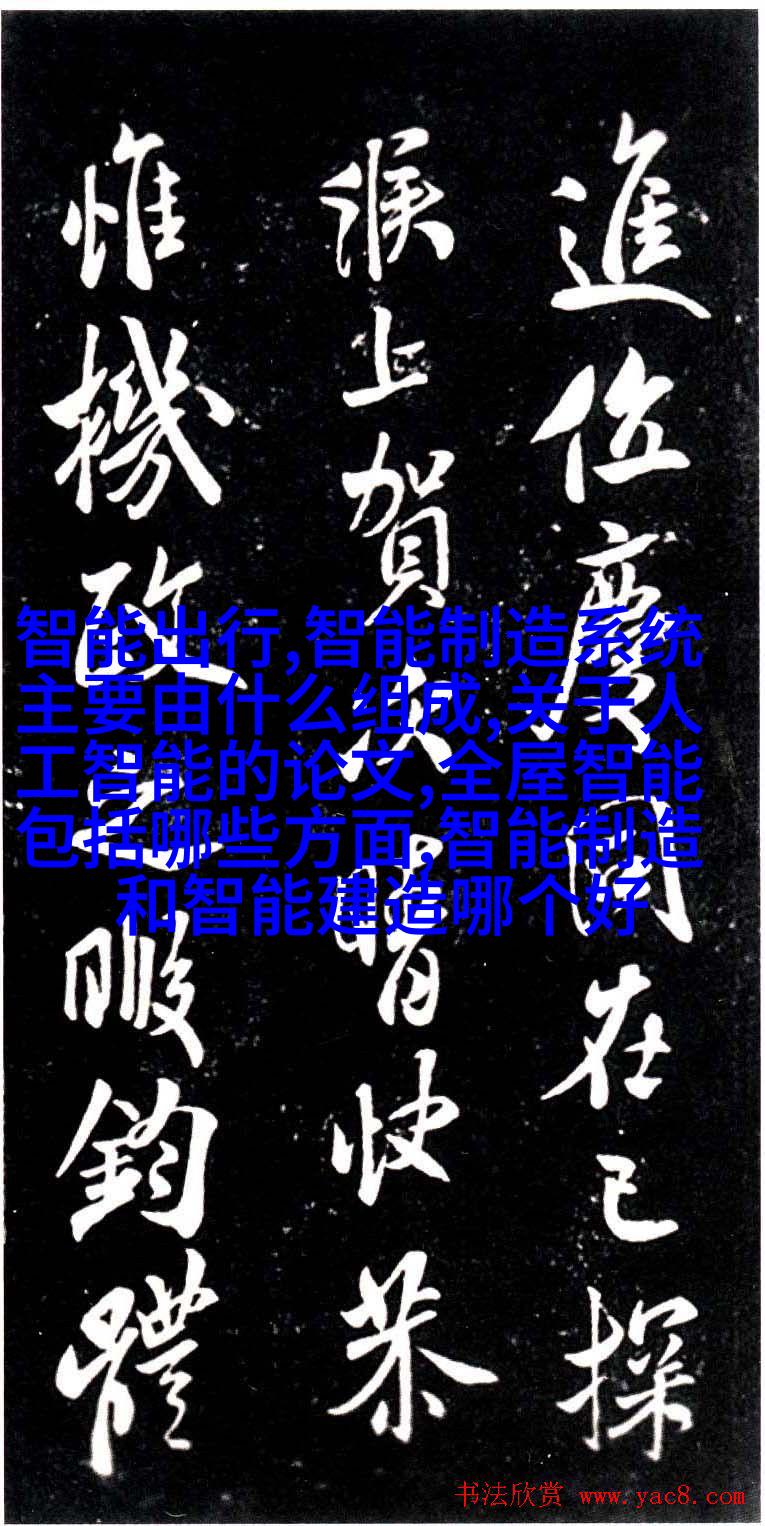 進位慶同在已探
候上賀次晴快恭
惟機政之暇鈞體
智能出行,智能制造系统
主要由什么组成,关于人
工智能的论文,全屋智能
包括哪些方面,智能制造
和智能建造哪个好
书法欣赏 www.yac8.com